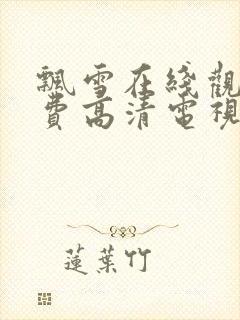 飄雪在綫觀
費高清電視
蓮葉竹